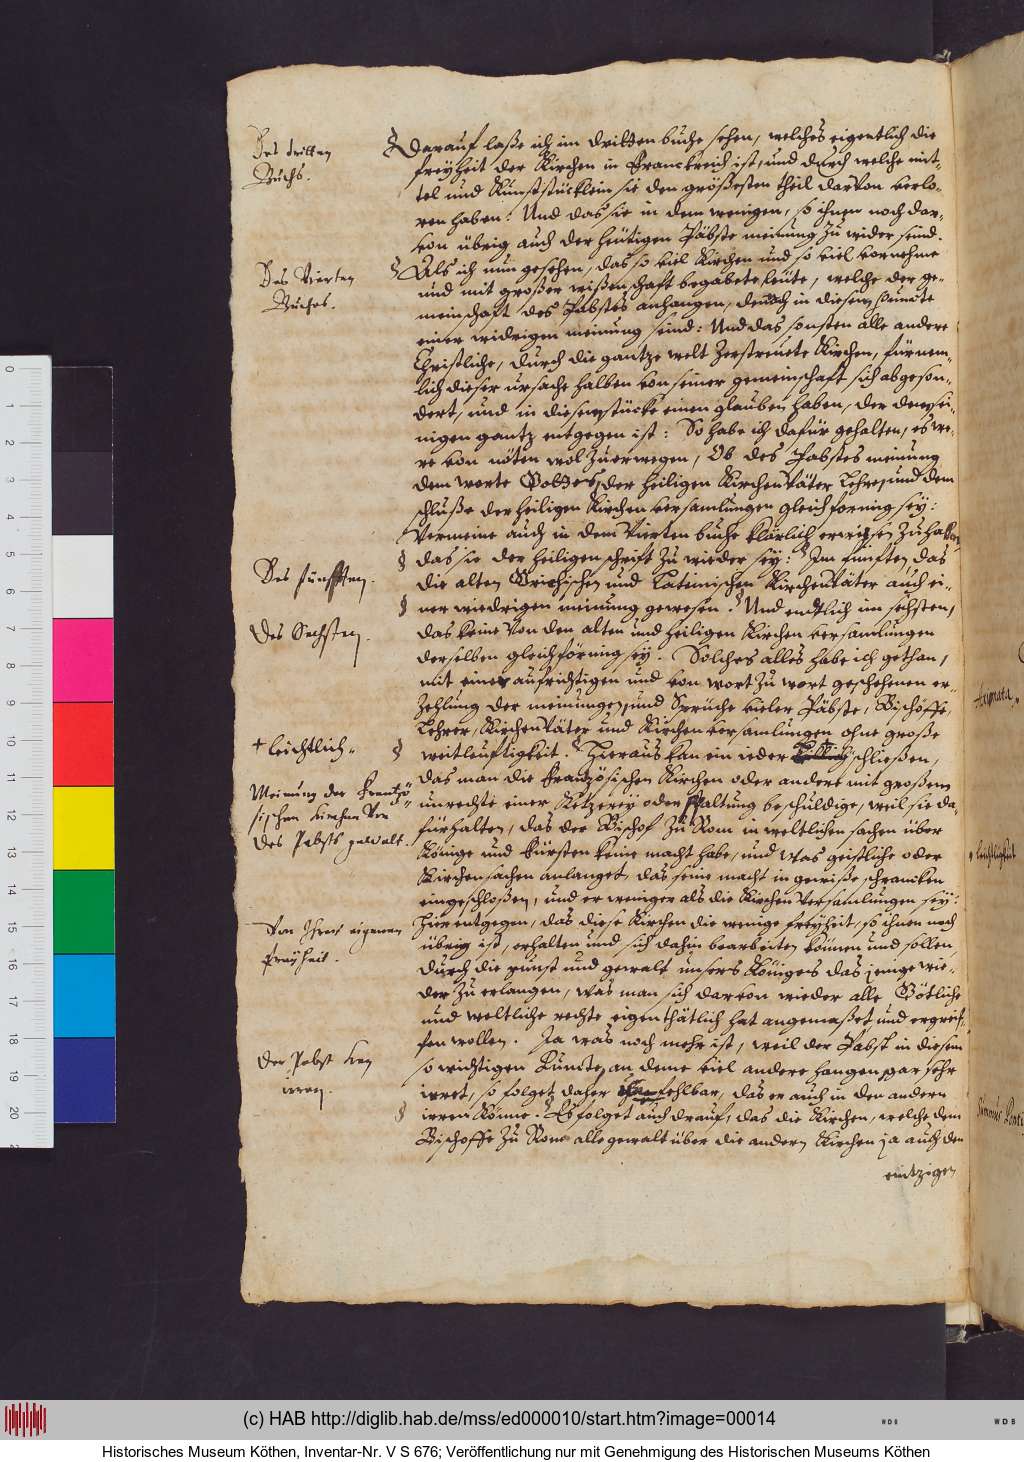 Des dritten
Buchs.
Darauf laße ich im dritten buche sehen, welches eigentlich die
freyheit der Kirchen in Franckreich ist, und durch welche mit-
tel und Kunststücklein sie den größesten theil darvon verlo-
ren haben: Und das sie in dem wenigen, so ihnen noch dar-
von übrig auch der heütigen Päbste meinung zu wider seind.
Des Vierten
Buchs.
Als ich nun gesehen, das so viel Kirchen und so viel vornehme
und mit großer wißenschaft begabete leüte, welche der ge-
meinschaft des Pabstes anhangen, dennoch in diesem Puncte
einer widrigen meinung seind: Und das sonsten alle andere
Christliche, durch die gantze welt zerstreuete Kirchen, fürnem-
lich dieser ursache halben von seiner gemeinschaft sich abgeson-
dert, und in diesem stücke einen glauben haben, der dem sei-
nigen gantz entgegen ist: So habe ich dafür gehalten, es we-
re von nöten wol zuerwegen, Ob des Pabstes meinung
dem worte Gottes, der heiligen Kirchen Väter Lehre, und dem
schluße der heiligen Kirchen versamlungen gleichförmig sey:
Vermeine auch in dem Vierten buche klärlich erwiesen zu haben
das sie der heiligen schrift zu wieder sey: Im fünften das
Des fünfften.
die alten Grichischen und Lateinischen Kirchen Väter auch ei-
ner wiedrigen meinung gewesen. Und endtlich im sechsten,
Des Sechsten.
das keine von den alten und heiligen Kirchen versamlungen
derselben gleichförmig sey. Solches alles habe ich gethan,
mit einer aufrichtigen und von wort zu wort geschehenen er-
zehlung der meinungen, und Sprüche vieler Päbste, Bischöffe,
Lehrer, Kirchen Väter und Kirchen versamlungen ohne große
+ leichtlich
weitleuftigkeit. Hieraus kan ein ieder schließen,
das man die Französischen Kirchen oder andere mit großem
Meinung der Frantzö-
sischen kirchen Von
des Pabsts gewalt.
unrechte einer Ketzerey oder Spaltung beschuldige, weil sie da-
fürhalten, das der Bischof zu Rom in weltlichen sachen über
Könige und Fürsten keine macht habe, und was geistliche oder
Kirchen sachen anlanget, das seine macht in gewiße schrancken
eingeschloßen, und er weniger als die Kirchen Versamlungen sey:
Von Ihrer eigenen
freyheit.
Hier entgegen, das diese Kirchen die wenige freyheit, so ihnen noch
übrig ist, erhalten und sich dahin bearbeiten können und sollen,
durch die gunst und gewalt unsers Königes das jenige wie-
der zu erlangen, was man sich darvon wieder alle Götliche
und weltliche rechte eigenthätlich hat angemaßet und ergreif-
fen wollen. Ja was noch mehr ist, weil der Pabst in diesem
Der Pabst kan
irren.
so wichtigen Puncte, an deme viel andere hangen, gar sehr
irret, so folget daher unfehlbar, das er auch in den andern
irren könne. Es folget auch drauf, das die Kirchen, welche dem
Bischoffe zu Rom alle gewalt über die andern Kirchen ja auch den
eintzigen
0
1
2
3
4
5
6
7
8
9
10
11
12
13
14
15
16
17
18
19
20
(c) HAB http://diglib.hab.de/mss/ed000010/start.htm?image=00014
Historisches Museum Köthen, Inventar-Nr. V S 676; Veröffentlichung nur mit Genehmigung des Historischen Museums Köthen